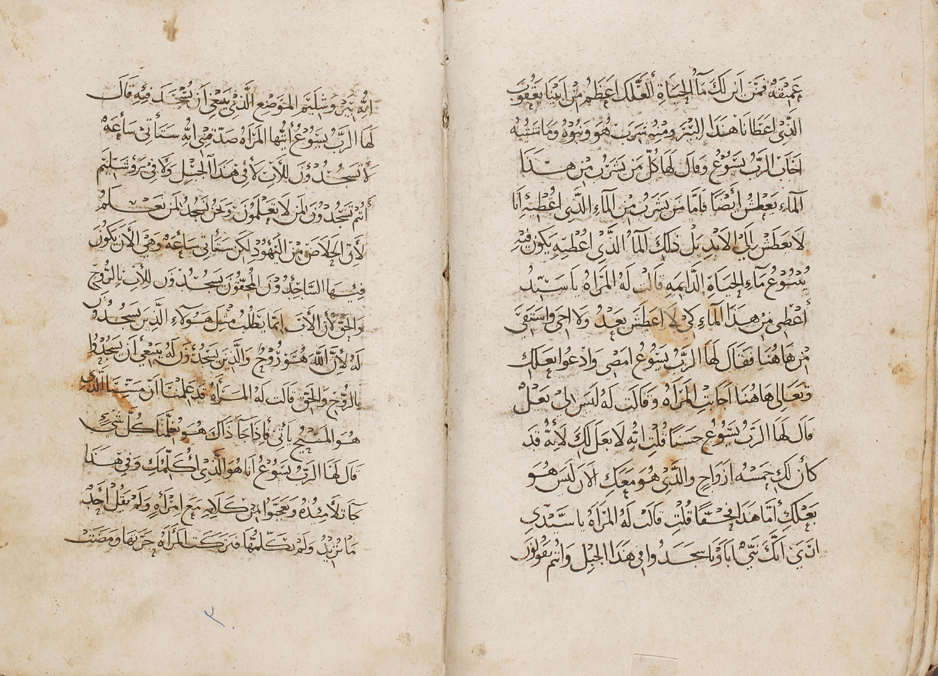 عميقه فمن اين لك ما الحياة ألعلك اعظم من ابينا يعقوب
الذي اعطانا هذا البير ومنه شرب هو وبنوه وماشيته
اجاب الرب يسوع وقال لها كل من يشرب من هذا
الماء يعطش أيضا فاما من يشرب من الماء الذي اعطيه أنا
لا يعطش إلى الابد بل ذلك الماء الذي اعطيه يكون فيه
ينبوع ماء الحياة الدايمه قالت له المراه يا سيد
أعطني من هذا الماء كي لا اعطش بعد ولا اجي واستقي
من هاهنا فقال لها الرب يسوع امضي وادعوا بعلك
وتعالي هاهنا اجابت المراه وقالت له ليس لي بعل
قال لها الرب يسوع حسنا قلت انه لا بعل لك لأنه قد
كان لك خمسه ازواج والذي هو معك الان ليس هو
بعلك أما هذا فحقا قلت قالت له المراه يا سيدي
اني أنك نبي اباونا سجدوا في هذا الجبل وانتم تقولون
انه بيروشليم الموضع الذي ينبغي ان يسجد فيه قال
لها الرب يسوع أيتها المراه صدقيني انه ستاتي ساعه
لا تسجدون للأب لا في هذا الجبل ولا في يروشليم
أنتم تسجدون لمن لا تعلمون ونحن نسجد لمن نعلم
لأن الخلاص من اليهود لكن ستاتي ساعه وهي الان يكون
فيها الساجدون المحقون يسجدون للأب بالروح
والحق لأن الأب انما يطلب مثل هولاء الذين يسجدون
له لأن الله هو روح والذين يسجدون له ينبغي أن يسجدوا
بالروح والحق قالت له المرأه قد علمنا ان مسيا الذي
هو المسيح ياتي فإذا جا ذاك هو يعلمنا كل شي
قال لها الرب يسوع أنا هو الذي أكلمك وفي هذا
جا تلاميذه وتعجبوا من كلامه مع امراه ولم يقل أحد
ما تريد ولم تكلمها فتركت المراه جرتها ومضت